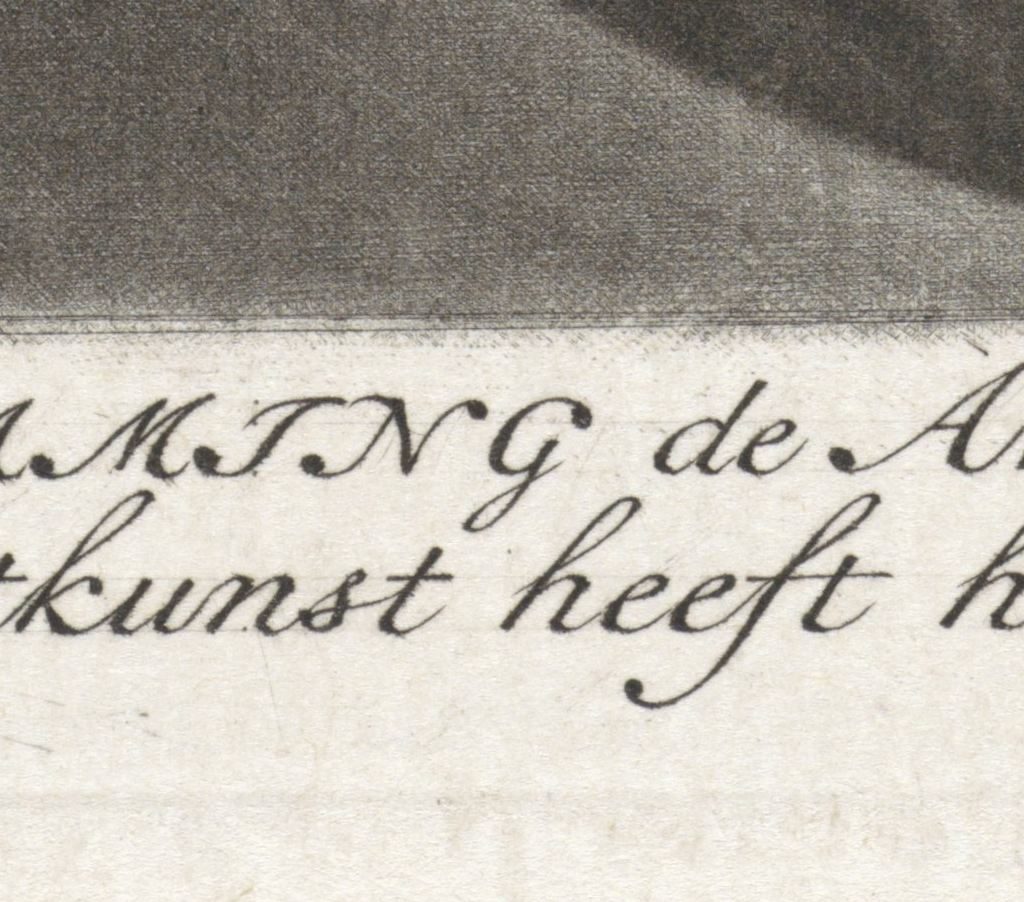 MING de
tkunst heeft h